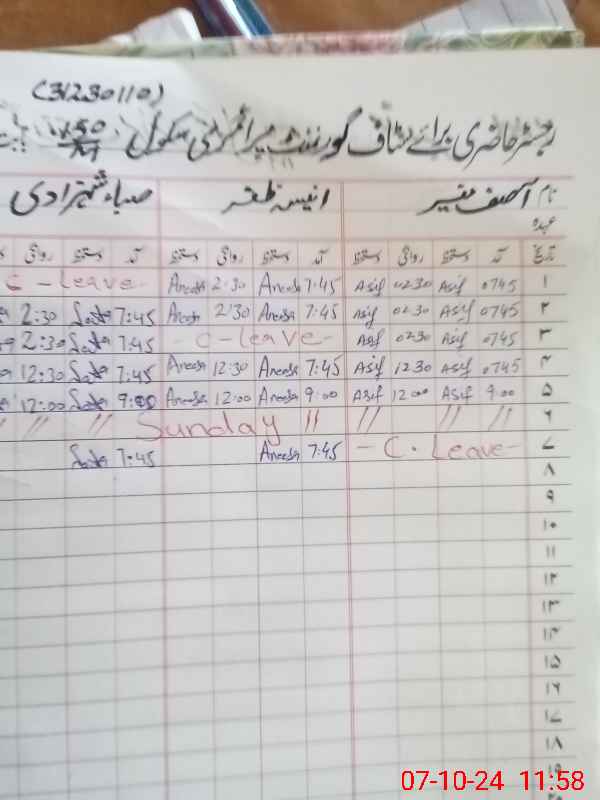 (31230110)
رجسٹر حاضری برائے سٹاف گورنمنٹ پرائمری سکول
نام آصف منیر انیسہ ظفر صباء شہزادی
عہدہ
تاریخ آمد دستخط روانگی دستخط آمد دستخط روانگی دستخط آمد دستخط روانگی
۱ 0745 Asif 02:30 Asif 7:45 Aneesa 2:30 Aneesa C-Leave
۲ 0745 Asif 02:30 Asif 7:45 Aneesa 2:30 Aneesa 7:45 2:30
۳ 0745 Asif 02:30 Asif -C-leave- 7:45 2:30
۴ 0745 Asif 12:30 Asif 7:45 Aneesa 12:30 Aneesa 7:45 12:30
۵ 9:00 Asif 12:00 Asif 9:00 Aneesa 12:00 Aneesa 9:00 12:00
۶ // // // // Sunday // //
۷ -C. Leave- 7:45 Aneesa 7:45
۸
۹
۱۰
۱۱
۱۲
۱۳
۱۴
۱۵
۱۶
۱۷
۱۸
۱۹
۲۰
07-10-24 11:58